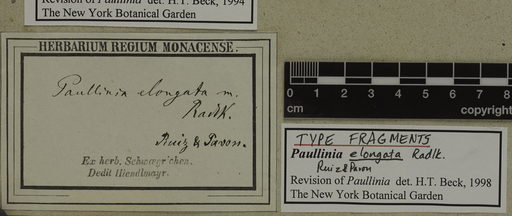 Revision of Paullinia det. H.T. Beck, 1994
The New York Botanical Garden
HERBARIUM REGIUM MONACENSE.
Paullinia elongata m.
Radlk.
Ruiz & Pavon.
Ex herb. Schwægrichen.
Dedit Hiendlmayr.
0 1 2 3 4 5 6 7 8
cm copyright
TYPE FRAGMENTS
Paullinia elongata Radlk.
Ruiz & Pavon
Revision of Paullinia det. H.T. Beck, 1998
The New York Botanical Garden